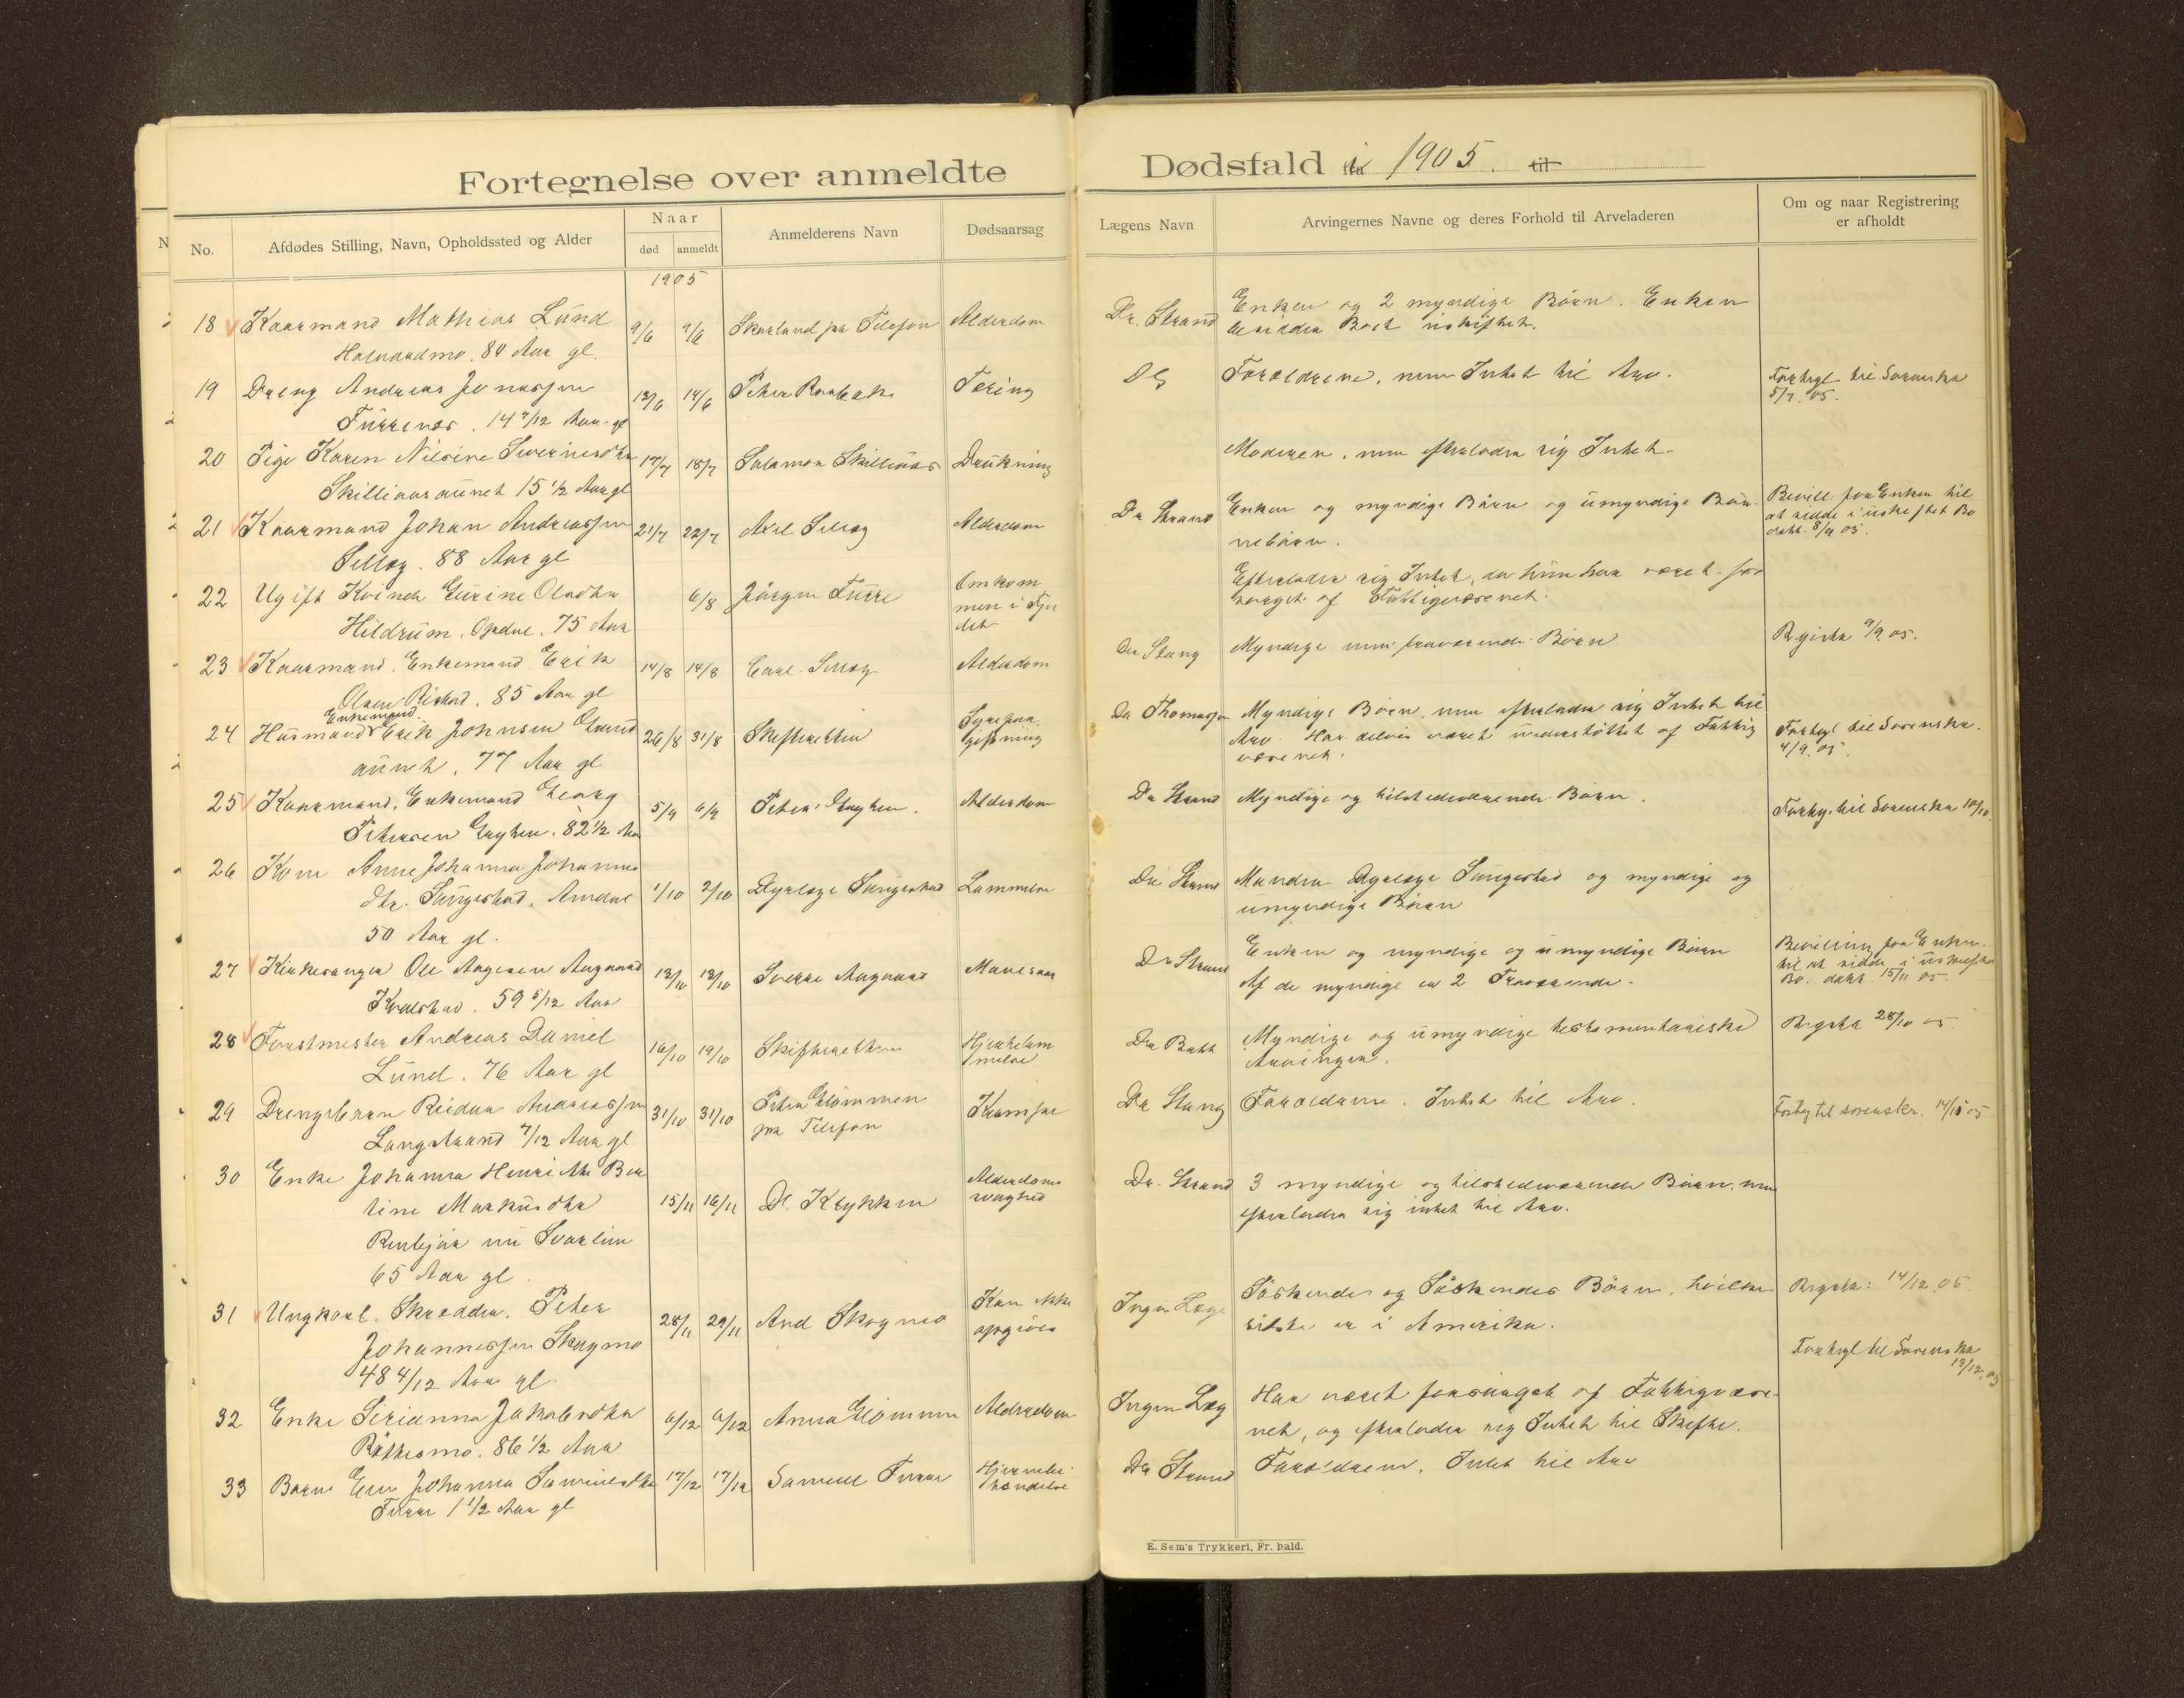 Fortegnelse over anmeldte Dødsfald i 1905. til
No.
Afdødes Stilling, Navn, Opholdssted og Alder
Naar
død
anmeldt
Anmelderens Navn
Dødsaarsag
Lægens Navn
Arvingernes Navne og deres Forhold til Arveladeren
Om og naar Registrering
er afholdt
1905
18 Kaarmand Mathias Lund 9/6 9/6 Skarland pr Telefon Alderdom Dr. Strand Enken og 2 myndige Børn. Enken
80 Aar gl. Boet uskiftet.
19 Dreng Andreas Jonassen 13/6 14/6 Peter Tæring Do Forældrene, men Intet til Arv. til Sorenskr
Furrenes. 14 7/12 Aar gl 5/7. 05.
20 Pige Karen Nilsine Severinsdtr 17/7 18/7 Salamon Skilliaas Drukning Moderen, men efterlader sig Intet.
Skilliaasaunet 15 1/2 Aar gl
21 Kaarmand Johan Andreassen 21/7 22/7 Axel Selløg Alderdom Dr Strand Enken og myndige Børn og umyndige Bør- Bevill. for Enken til
Selløg. 88 Aar gl nebørn. at sidde i uskiftet Bo
datt. 8/9 05.
22 Ugift Kvinde Gurine Olsdtr 6/8 Jørgen Furre Omkom Efterlader sig Intet, da hun har været for
Hildrum, Opdal. 75 Aar men i Fjel sørget af Fattigvæsenet.
det
23 Kaarmand, Enkemand Erik 14/8 14/8 Carl Selløg Alderdom Dr Stang Myndige men fraværende Børn Registr 9/9. 05.
Olsen 85 Aar gl
24 Husmand Enkemand Erik Johnsen 26/8 31/8 Skifteretten Dr Thomassen Myndige Børn, men efterlader sig Intet til
aunet, 77 Aar gl giftning Arv. Har delvis været understøttet af Fattig til Sorenskr.
væsenet. 4/9. 05.
25 Kaarmand, Enkemand Georg 5/9 6/9 Peter Alderdom Dr Strand Myndige og tilstedeværende Børn. til Sorenskr 10/10
Petersen 82 1/2 Aar
26 Kone Anne Johanna Johannes 1/10 2/10 Dyrlæge Lammelse Dr Strand Manden Dyrlæge og myndige og
dtr. 50 Aar gl. umyndige Børn
27 Kirkesanger Ole Aagesen Aagaard 13/10 13/10 Sverre Aagaard Mavesaar Dr Strand Enken og myndige og umyndige Børn Bevilling for Enken
Kvalstad. 59 5/12 Aar Af de myndige er 2 Fraværende. til at sidde i uskiftet
Bo. datt. 15/11 05.
28 Forstmester Andreas Daniel 16/10 19/10 Skifteretten Hjertelam Dr Bull Myndige og umyndige testamentariske Registr 28/10 05
Lund. 76 Aar gl melse Arvinger.
29 Drengebarn Reidar Andreassen 31/10 31/10 Peter Glømmen Krampe Dr Stang Forældrene. Intet til Arv. til sorenskr. 05
Langstrand 7/12 Aar gl pr Telefon
30 Enke Johanna Henriette Ber 15/11 16/11 O. Krykken Alderdoms Dr. Strand 3 myndige og tilstedeværende Børn, men
tine Markusdtr svaghed efterlader sig intet til Arv.
nu Svarlien
65 Aar gl.
31 Ungkarl, Skrædder, Peter 28/11 29/11 And Skogmo Kan ikke Ingen Læge Søskende og Søskendes Børn, hvilke Registr: 14/12. 05
Johannessen Skogmo opgives sidste er i Amerika.
48 4/12 Aar gl. til Sorenskr
13/12. 05
32 Enke Serianna Jakobsdtr 6/12 6/12 Anna Glømmen Alderdom Ingen Læg Har været forsørget af Fattigvæse-
86 1/2 Aar net, og efterlader sig Intet til Skifte.
33 Barn Johanna Samuelsdtr 17/12 17/12 Samuel Furre Dr Strand Forældrene. Intet til Arv
Furre 1 1/2 Aar gl
E. Sem's Trykkeri, Fr. hald.